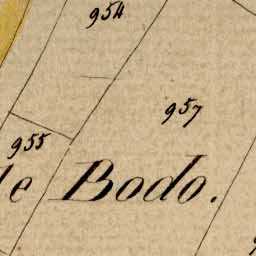 954
957
955
le Bodo.